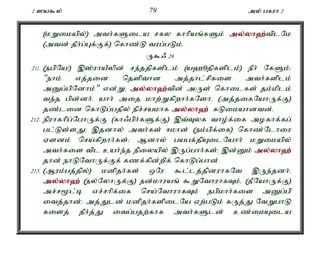 2 ஸயகூல் 79 அல் பகரா 2
(மறுமையில்) அவர்களுடைய சகல காரியங்களும் அல்லாஹ்விடமே
(அவன் தீர்ப்புக்குக்) கொண்டு வரப்படும்.
ருகூஃ 26
211. (நபியே!) இஸ்ராயீலின் சந்ததிகளிடம் (யஹூதிகளிடம்) நீர் கேளும்:
"நாம் எத்தனை தெளிவான அத்தாட்சிகளை அவர்களிடம்
அனுப்பினோம்" என்று; அல்லாஹ்வின் அருள் கொடைகள் தம்மிடம்
வந்த பின்னர், யார் அதை மாற்றுகிறார்களோ, (அத்தகையோருக்கு)
தண்டனை கொடுப்பதில் நிச்சயமாக அல்லாஹ் கடுமையானவன்.
212. நிராகரிப்போருக்கு (காஃபிர்களுக்கு) இவ்வுலக வாழ்க்கை அழகாக்கப்
பட்டுள்ளது; இதனால் அவர்கள் ஈமான் (நம்பிக்கை) கொண்டோரை
ஏளனம் செய்கிறார்கள்; ஆனால் பயபக்தியுடையோர் மறுமையில்
அவர்களை விட உயர்ந்த நிலையில் இருப்பார்கள்; இன்னும் அல்லாஹ்
தான் நாடுவோருக்குக் கணக்கின்றிக் கொடுப்பான்.
213. (ஆரம்பத்தில்) மனிதர்கள் ஒரே கூட்டத்தினராகவே இருந்தனர்;
அல்லாஹ் (நல்லோருக்கு) நன்மாராயங் கூறுவோராகவும், (தீயோருக்கு)
அச்சமூட்டி எச்சரிக்கை செய்வோராகவும் நபிமார்களை அனுப்பி
வைத்தான்; அத்துடன் மனிதர்களிடையே ஏற்படும் கருத்து வேறுபாடு
களைத் தீர்த்து வைப்பதற்காக அவர்களுடன் உண்மையுடைய